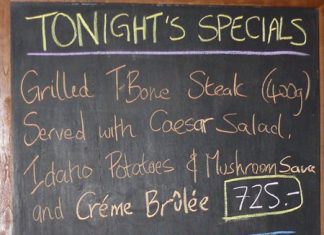 TONIGHT'S SPECIALS
Grilled T-Bone Steak (420g)
Served with Caesar Salad,
Idaho Potatoes & Mushroom Sauce
and Créme Brûlée 725.-